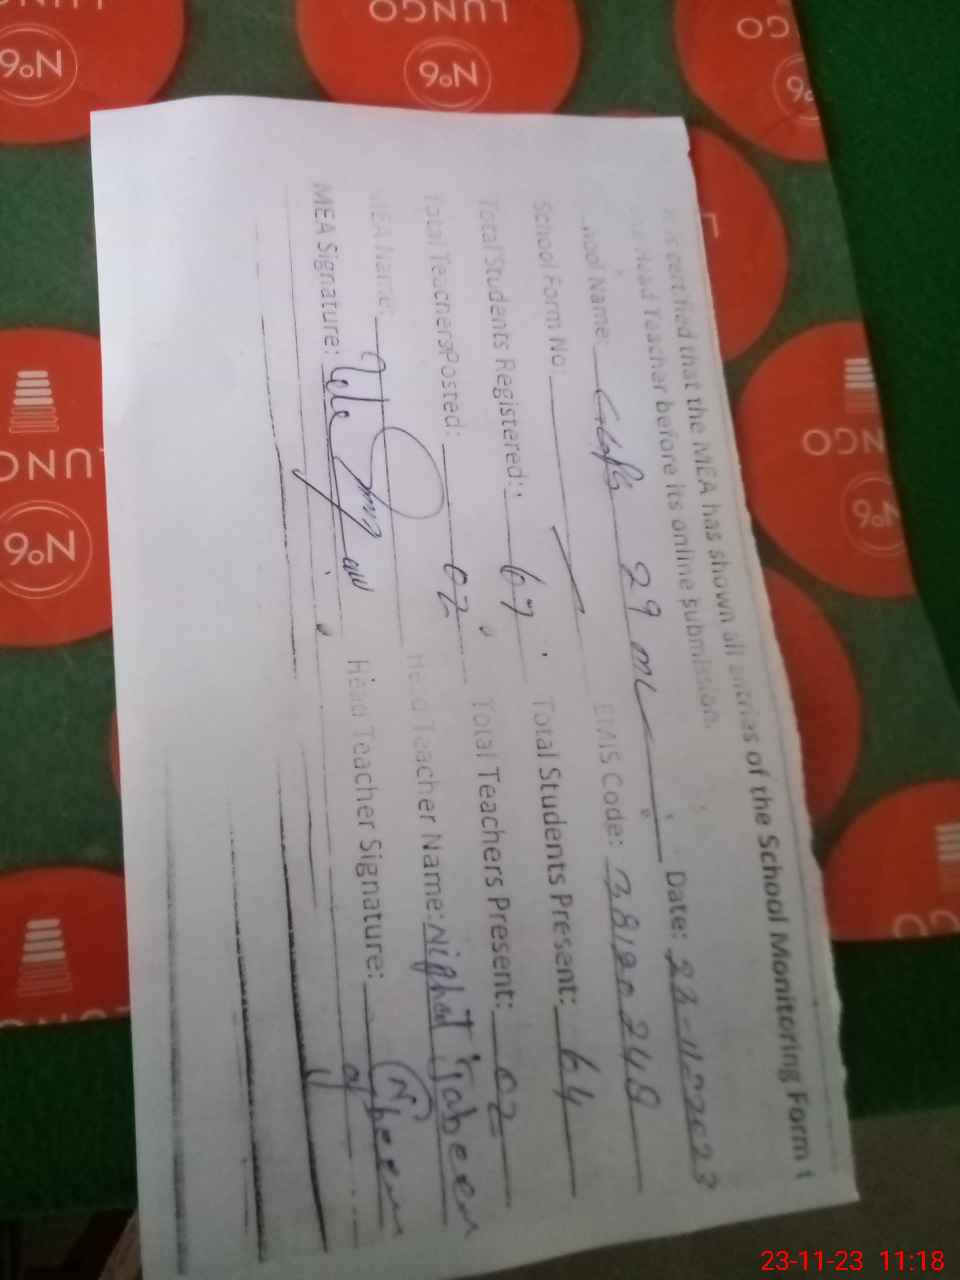 It is certified that the MEA has shown all entries of the School Monitoring Form t
Head Teacher before its online submission.
Name: 29 ML Date: 23-11-2023
School Form No: EMIS Code: 38120248
Total Students Registered: 67 Total Students Present: 64
Total Teachers Posted: 02 Total Teachers Present: 02
MEA Name: Head Teacher Name: Nighat Jabeen
MEA Signature: Head Teacher Signature:
LUNGO
Nº6
LUNGO
Nº6
GO
LUNGO
Nº6
LUNGO
Nº6
23-11-23 11:18